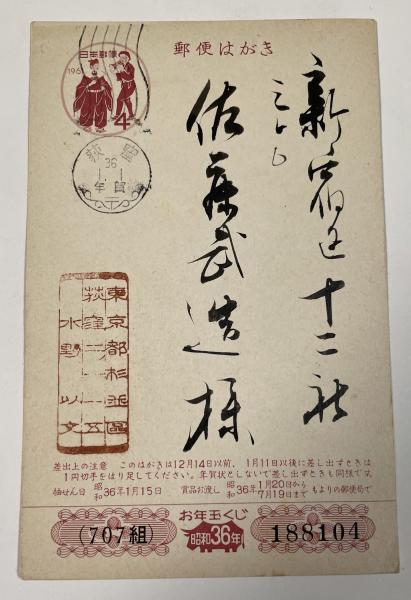 郵便はがき
日本郵便
196
4
荻窪
36
1 1
年賀
新宿区十二社
三一六
佐藤武造様
東京都杉並區
荻窪二ノ一一五
水野以文
差出上の注意 このはがきは12月14日以前、1月11日以後に差し出すときは
1円切手をはり足してください。年賀状としないで差し出すときも同様です。
抽せん日 昭和36年1月15日 賞品お渡し 昭和36年1月20日から7月19日まで もよりの郵便局で
お年玉くじ
(707組)
昭和36年
188104